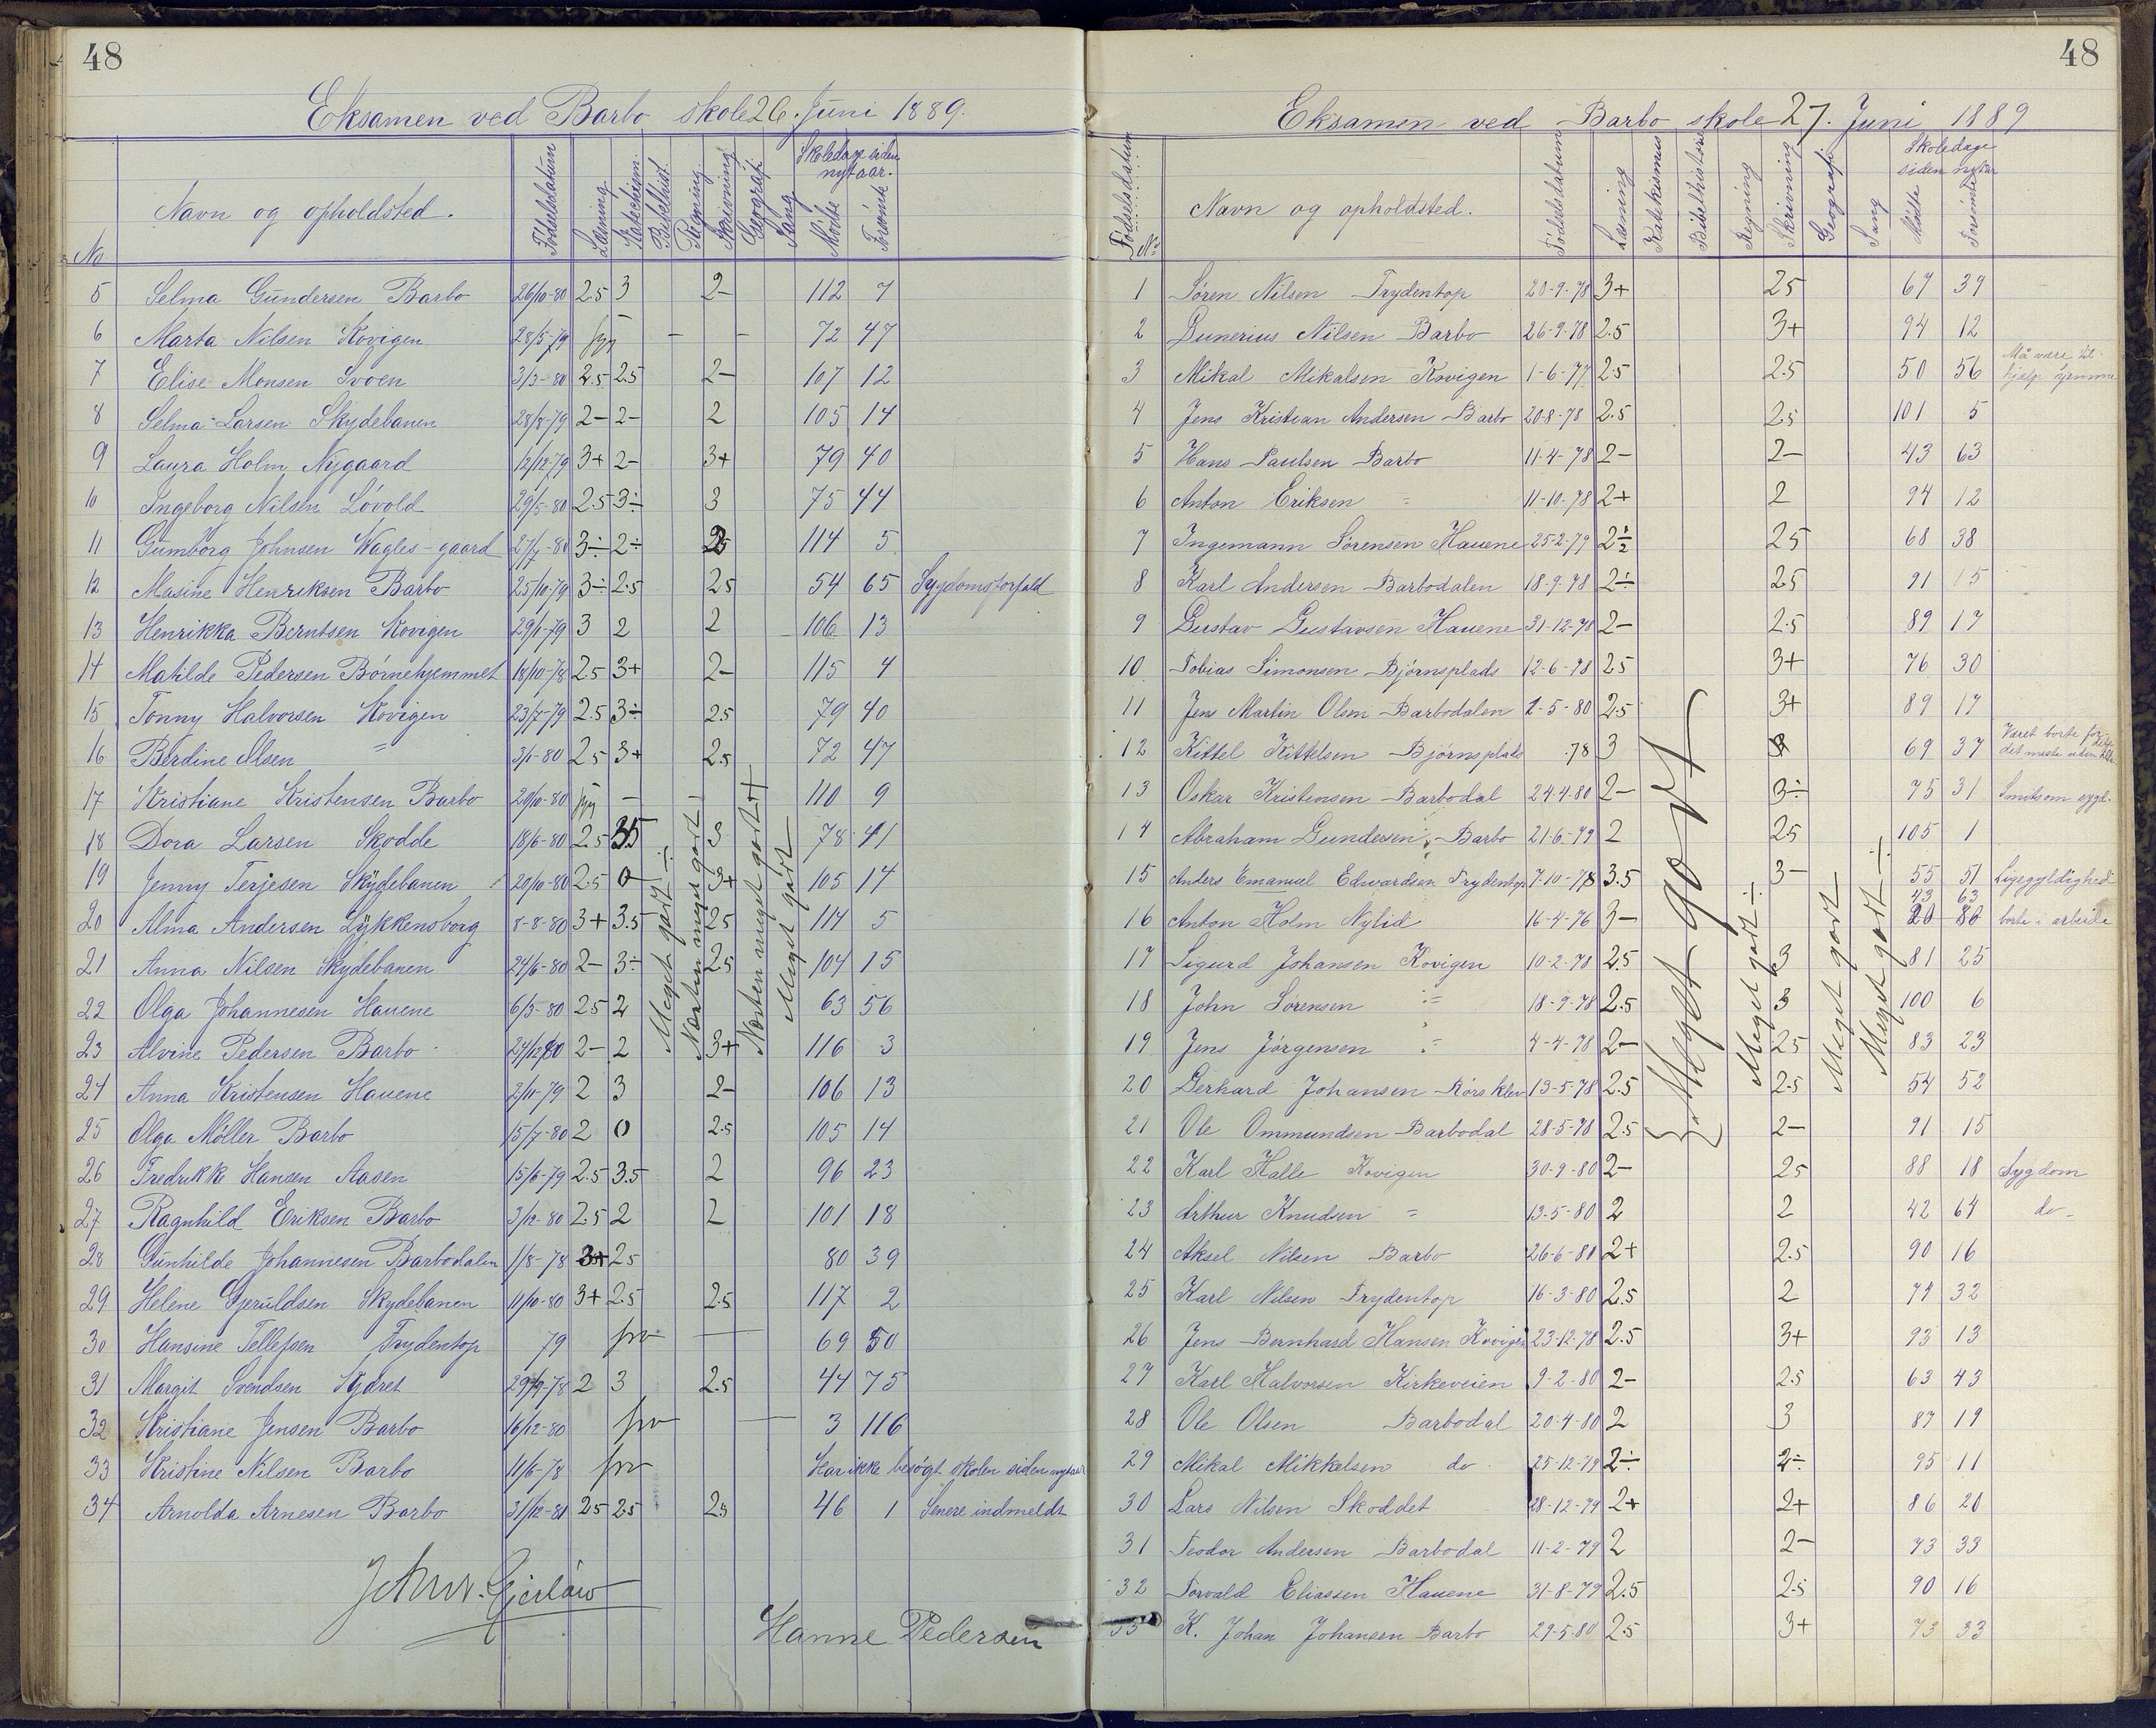 48
Eksamen ved Barbo skole 26. Juni 1889.
No
Navn og opholdsted.
Födselsdatum
Læsning
Katechism.
Bibelhist.
Regning.
Skrivning
Geografi
Sang
Skoledage siden nytaar.
Mödte
Forsömte
5 Selma Gundersen Barbo 26/10-80 2.5 3 2- 112 7
6 Marta Nilsen Kovigen 28/5-79 - - 72 47
7 Elise Monsen Svoen 3/3-80 2.5 2.5 2- 107 12
8 Selma Larsen Skydebanen 28/8-79 2- 2- 2 105 14
9 Laura Holm Nygaard 12/12-79 3+ 2- 3+ 79 40
10 Ingeborg Nilsen Lövold 29/5-80 2.5 3÷ 3 75 44
11 Gumborg Johnsen Wagles-gaard 27/7-80 3÷ 2÷ 2.5 114 5
12 Masine Henriksen Barbo 25/10-79 3÷ 2.5 2.5 54 65 Sygdomsforfald
13 Henrikka Berntsen Kovigen 29/1-79 3 2 2 106 13
14 Matilde Pedersen Börnehjemmet 18/10-78 2.5 3+ 2- 115 4
15 Tonny Halvorsen Kovigen 23/7-79 2.5 3÷ 2.5 79 40
16 Berdine Olsen = 3/1-80 2.5 3+ 2.5 72 47
17 Kristiane Kristensen Barbo 29/10-80 - - 110 9
18 Dora Larsen Skodde 18/6-80 2.5 3.5 3 78 41
19 Jenny Terjesen Skydebanen 20/10-80 2.5 0 3+ 105 14
20 Alma Andersen Lykkensborg 8-8-80 3+ 3.5 2.5 114 5
21 Anna Nilsen Skydebanen 24/6-80 2- 3÷ 2.5 104 15
22 Olga Johannesen Hauene 6/3-80 2.5 2 63 56
23 Alvine Pedersen Barbo 24/12-80 2- 2 3+ 116 3
24 Anna Kristensen Hauene 2/11-79 2 3 2- 106 13
25 Olga Möller Barbo 15/7-80 2 0 2.5 105 14
26 Fredrikke Hansen Aasen 15/6-79 2.5 3.5 2 96 23
27 Ragnhild Eriksen Barbo 3/12-80 2.5 2 2 101 18
28 Gunhilde Johannesen Barbodalen 1/8-78 3+ 2.5 80 39
29 Helene Gjeruldsen Skydebanen 11/10-80 3+ 2.5 2.5 117 2
30 Hansine Tellefsen Frydentop 79 frv 69 50
31 Margit Svendsen 29/9-78 2 3 2.5 44 75
32 Kristiane Jensen Barbo 10/12-80 frv 3 116
33 Kristine Nilsen Barbo 11/6-78 frv Har ikke besögt skolen siden nytaar
34 Arnolda Arnesen Barbo 31/12-81 2.5 2.5 2.5 46 1 Senere indmeldt
Meget godt ÷
Næsten meget godt
Næsten meget godt +
Meget godt
Hanne Pedersen
48
Eksamen ved Barbo skole 27. Juni 1889
Födselsdatum
No
Navn og opholdsted.
Födselsdatum
Læsning
Katekismus
Bibelhistorie
Regning
Skrivning
Geografi
Sang
Skoledage siden nytår
Mödte
Forsömte
1 Sören Nilsen Frydentop 20-9-78 3+ 2.5 67 39
2 Gunerius Nilsen Barbo 26-9-78 2.5 3+ 94 12
3 Mikal Mikalsen Kovigen 1-6-77 2.5 2.5 50 56 Må være til hjelp hjemme
4 Jens Kristian Andersen Barbo 20-8-78 2.5 2.5 101 5
5 Hans Paulsen Barbo 11-4-78 2- 2- 43 63
6 Anton Eriksen = 11-10-78 2+ 2 94 12
7 Ingemann Sörensen Hauene 25-2-79 2÷ 2.5 68 38
8 Karl Andersen Barbodalen 18-9-78 2÷ 2.5 91 15
9 Gustav Gustavsen Hauene 31-12-78 2- 2.5 89 17
10 Tobias Simonsen Björnsplads 12-6-78 2.5 3+ 76 30
11 Jens Martin Olsen Barbodalen 1-5-80 2.5 3+ 89 17
12 Kittel Kittelsen Björnsplads 78 3 69 37 Været borte for det meste uden
13 Oskar Kristensen Barbodal 24-4-80 2- 3÷ 75 31 Smitsom sygd.
14 Abraham Gundersen Barbo 21-6-79 2 2.5 105 1
15 Anders Emanuel Edwardsen Frydentop 7-10-78 3.5 3- 55 51 Ligegyldighed
43 63
16 Anton Holm Nylid 16-4-76 3- 20 86 borte i arbeide
17 Sigurd Johansen Kovigen 10-2-78 2.5 3 81 25
18 John Sörensen = 18-9-78 2.5 3 100 6
19 Jens Jörgensen = 4-4-78 2- 2.5 83 23
20 Gerhard Johansen Rörsklev 13-5-78 2.5 2.5 54 52
21 Ole Ommundsen Barbodal 28-5-78 2.5 2- 91 15
22 Karl Halle Kovigen 30-9-80 2- 2.5 88 18 Sygdom
23 Arthur Knudsen = 13-5-80 2 2 42 64 do-
24 Aksel Nilsen Barbo 26-6-80 2+ 2.5 90 16
25 Karl Nilsen Frydentop 16-3-80 2.5 2 74 32
26 Jens Bernhard Hansen Kovigen 23-12-78 2.5 3+ 93 13
27 Karl Halvorsen Kirkeveien 9-2-80 2- 2.5 63 43
28 Ole Olsen Barbodal 20-4-80 2 3 87 19
29 Mikal Mikkelsen do 25-12-79 2÷ 2÷ 95 11
30 Lars Nilsen Skoddet 28-12-79 2+ 2+ 86 20
31 Teodor Andersen Barbodal 11-2-79 2 2- 73 33
32 Torvald Eliassen Hauene 31-8-79 2.5 2.5 90 16
33 K. Johan Johansen Barbo 29-5-80 2.5 3+ 73 33
Meget godt
Meget godt ÷
Meget godt
Meget godt ÷